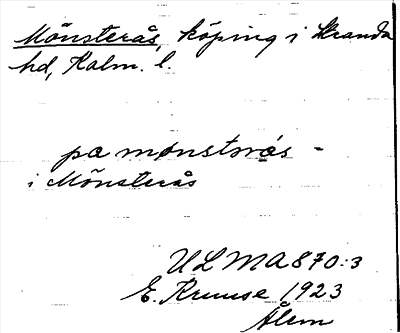 Mönsterås, köping i Stranda
hd, Kalm. l.
pa mønstərås -
i Mönsterås
ULMA 870:3
E. Kruuse 1923
Ålem